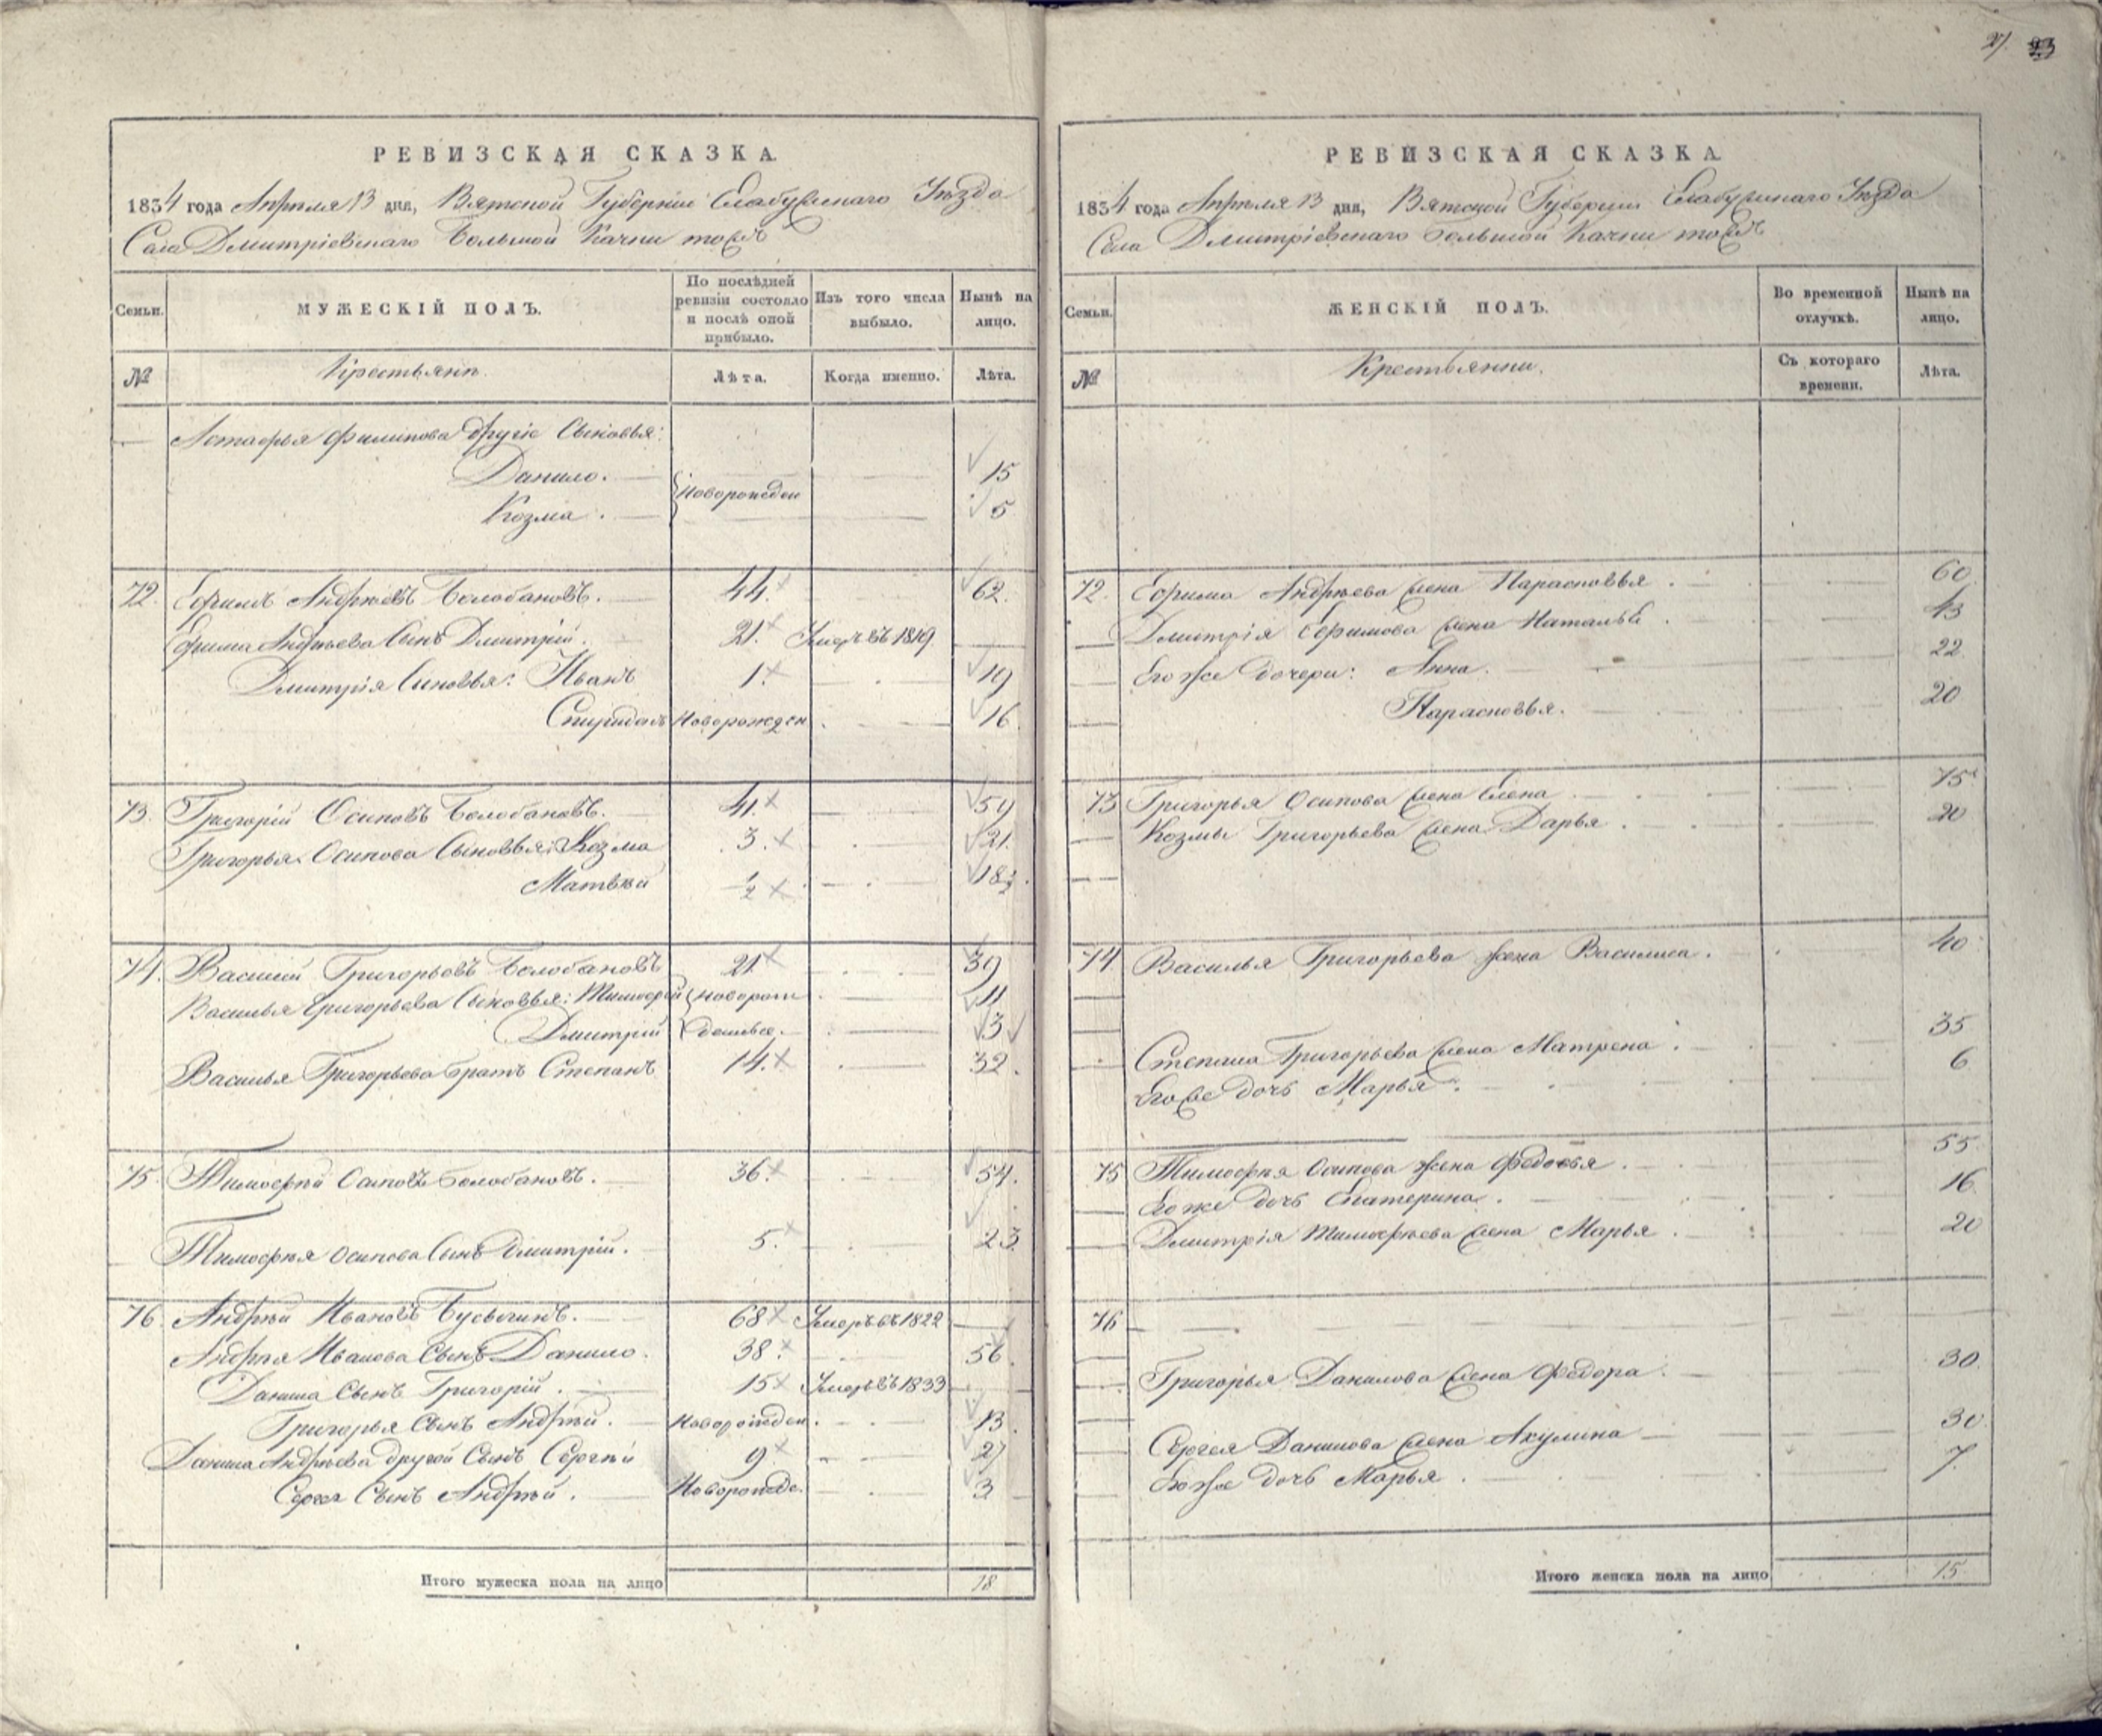 27. 23
РЕВИЗСКАЯ СКАЗКА.
1834 года Апреля 13 дня, Вятской Губернiи Елабужскаго Уѣзда
Села Дмитрiевскаго Большой Качки тожъ
Семьи.
МУЖЕСКIЙ ПОЛЪ.
По послѣдней ревизiи состояло и послѣ оной прибыло.
Изъ того числа выбыло.
Нынѣ на лицо.
№
Крестьяне.
Лѣта.
Когда именно.
Лѣта.
Астафья Филипова другiе Сыновья:
Данило. Новорожден 15
Козма. 5
72. Ефимъ Андрѣевъ Белобановъ. 44. 62.
Ефима Андрѣева Сынъ Дмитрiй. 21. Умеръ въ 1819.
Дмитрiя Сыновья: Иванъ 1. 19
Спиридонъ Новорожден. 16.
73. Григорiй Осиповъ Белобановъ. 41. 59
Григорья Осипова Сыновья: Козма 3. 21.
Матвѣй ½ 18½.
74. Василiй Григорьевъ Белобановъ 21. 39
Василья Григорьева Сыновья: Тимофѣй Новорож 11
Дмитрiй денные. 3
Василья Григорьева братъ Степанъ 14. 32.
75. Тимофѣй Осиповъ Белобановъ. 36. 54.
Тимофѣя Осипова Сынъ Дмитрiй. 5. 23.
76. Андрѣй Ивановъ Бусыгинъ. 68 Умеръ въ 1822
Андрѣя Иванова Сынъ Данило. 38. 56.
Данила Сынъ Григорiй. 15 Умеръ въ 1833
Григорья Сынъ Андрѣй. Новорожден. 13.
Данила Андрѣева другой Сынъ Сергѣй 9. 27
Сергея Сынъ Андрѣй. Новорожде. 3
Итого мужеска пола на лицо 18
РЕВИЗСКАЯ СКАЗКА
1834 года Апреля 13 дня, Вятской Губернiи Елабужскаго Уѣзда
Села Дмитрiевскаго Большой Качки тожъ
Семьи.
ЖЕНСКIЙ ПОЛЪ.
Во временной отлучкѣ.
Нынѣ на лицо.
№
Крестьянки.
Съ котораго времени.
Лѣта.
72. Ефима Андрѣева жена Парасковья. 60.
Дмитрiя Ефимова жена Наталья. 43
Егоже дочери: Анна. 22
Парасковья. 20
73 Григорья Осипова жена Елена 75
Козмы Григорьева жена Дарья. 20
74. Василья Григорьева жена Василиса. 40
Степана Григорьева жена Матрена. 35
Егоже дочь Марья. 6
75 Тимофѣя Осипова жена Федосья. 55
Егоже дочь Екатерина. 16.
Дмитрiя Тимофѣева жена Марья. 20
76
Григорья Данилова жена Федора. 30.
Сергея Данилова жена Акулина 30
Егоже дочь Марья. 7.
Итого женска пола на лицо 15